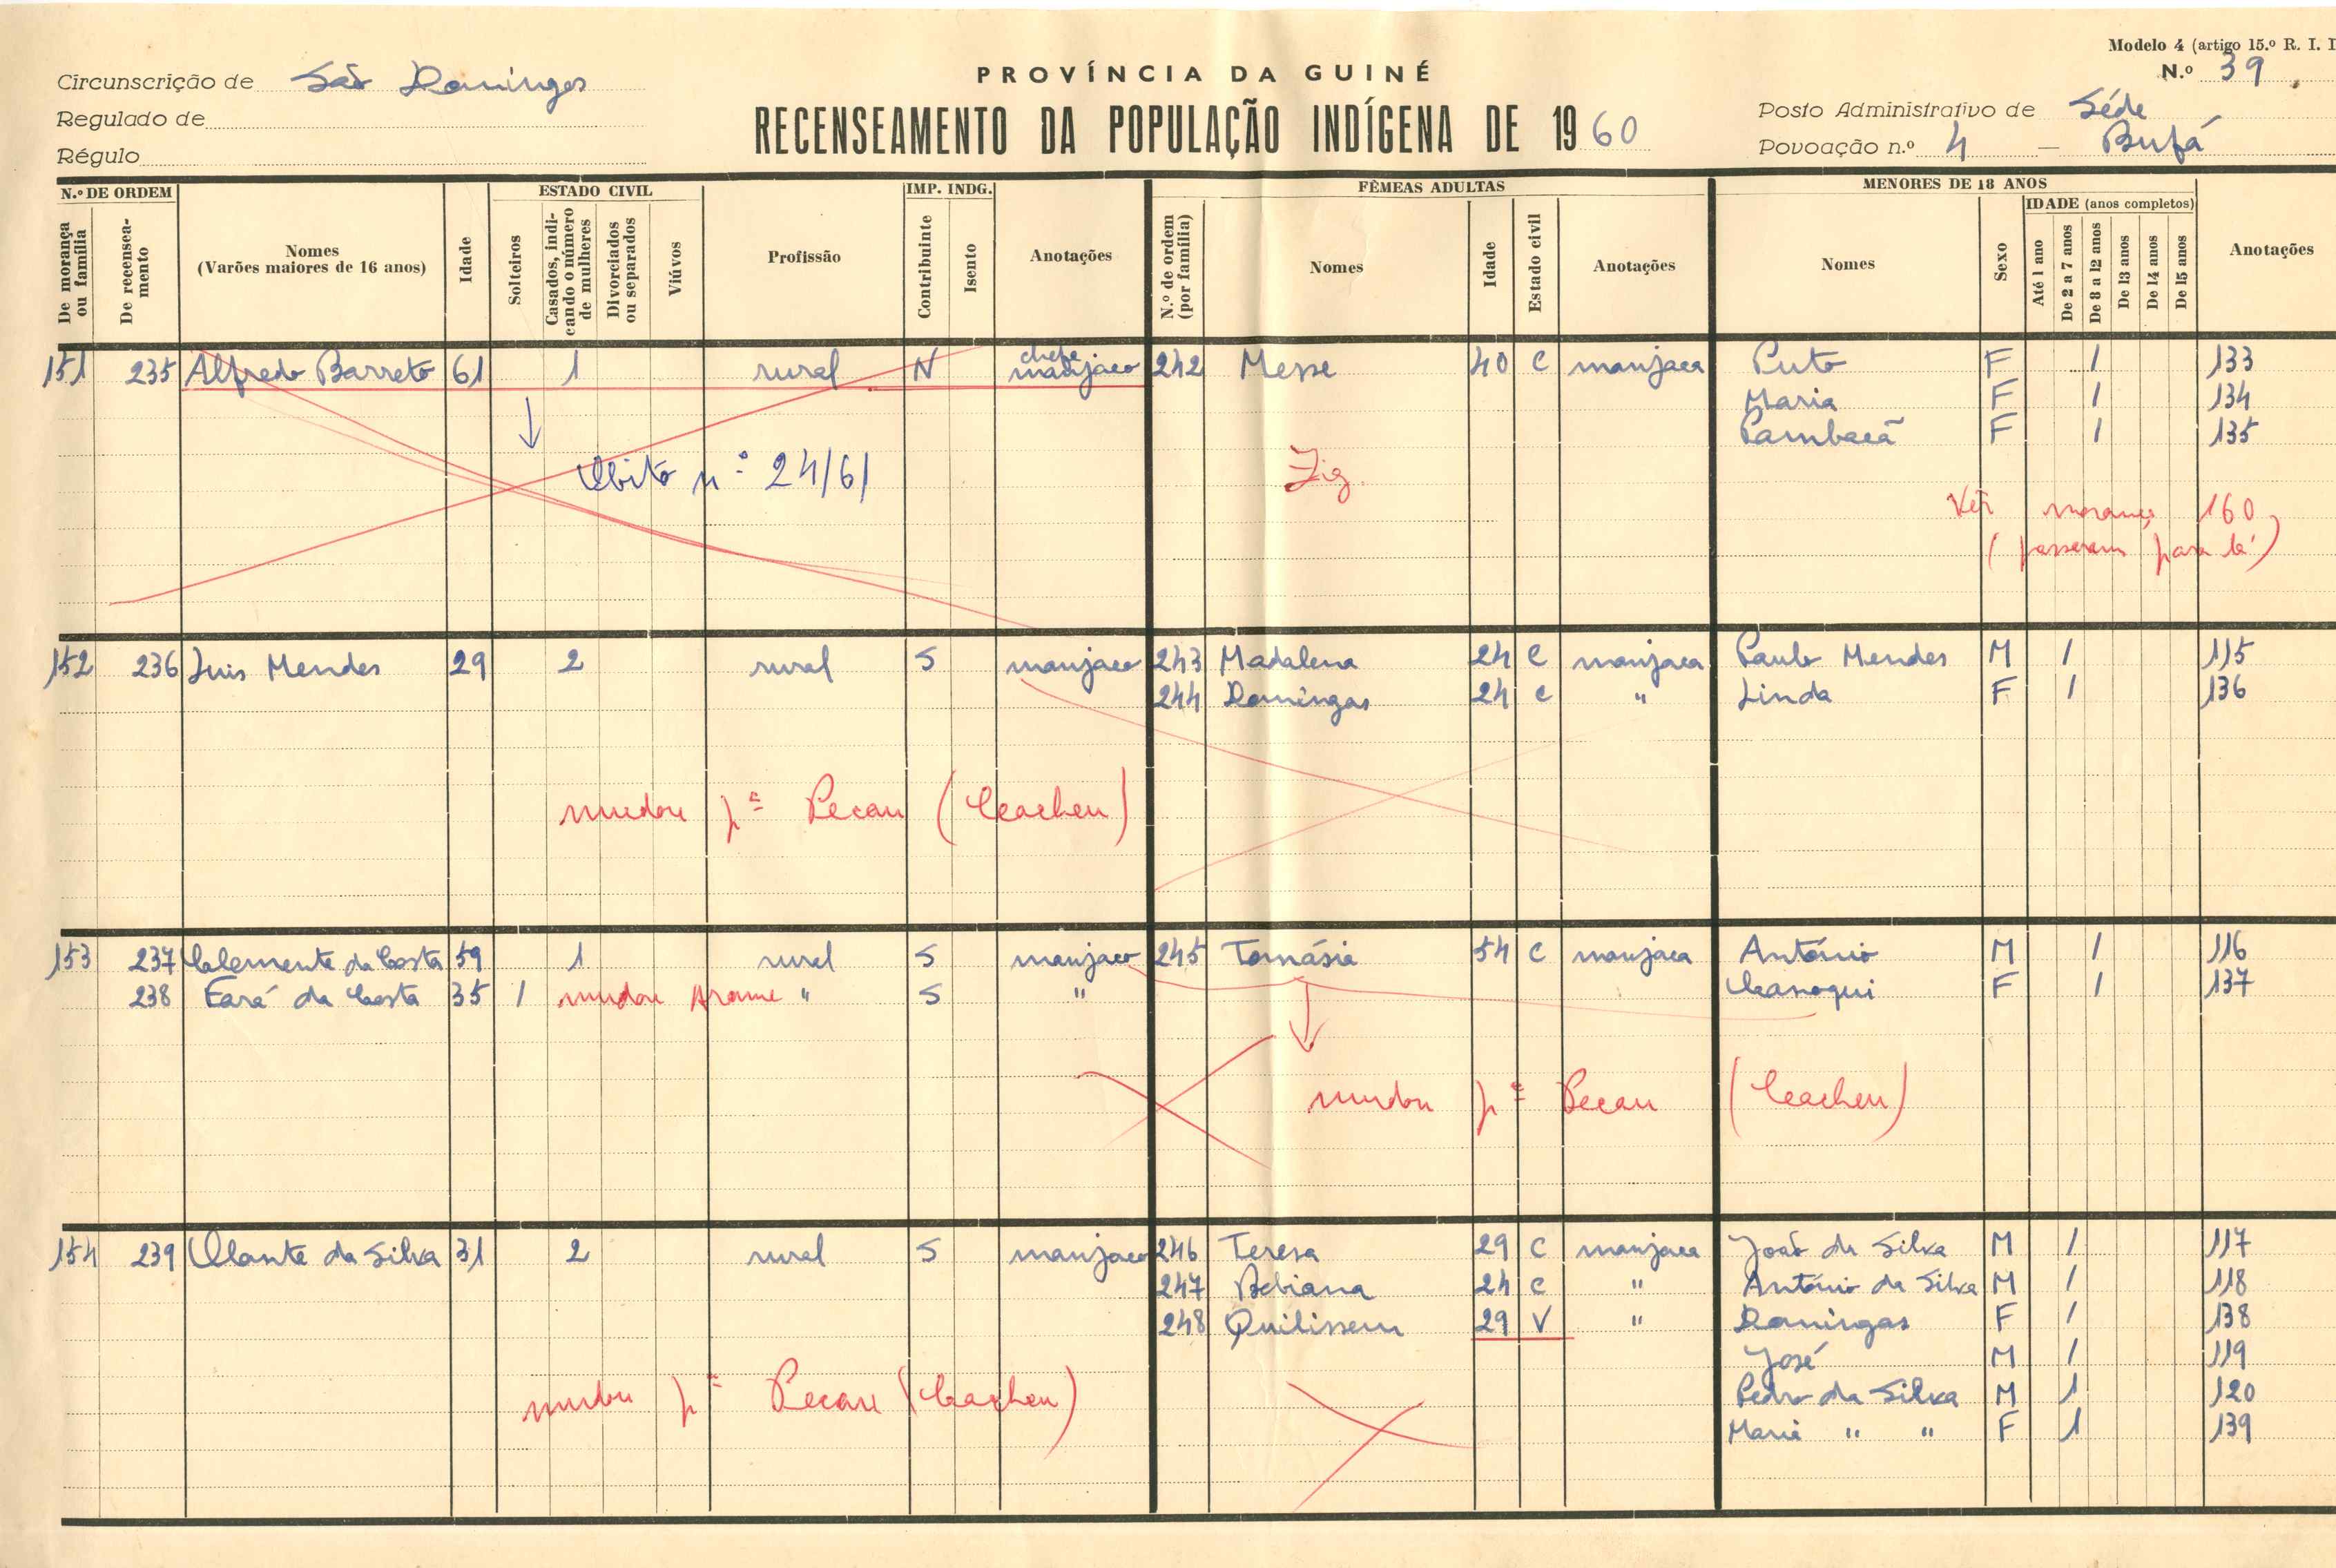 Modelo 4 (artigo 15.º R. I. I
N.º 39
Circunscrição de São Domingos
Regulado de
Régulo
PROVÍNCIA DA GUINÉ
RECENSEAMENTO DA POPULAÇÃO INDÍGENA DE 1960
Posto Administrativo de Séde
Povoação n.º 4 — Bufá
N.º DE ORDEM
De morança ou família
De recenseamento
Nomes
(Varões maiores de 16 anos)
Idade
ESTADO CIVIL
Solteiros
Casados, indicando o número de mulheres
Divorciados ou separados
Viúvos
Profissão
IMP. INDG.
Contribuinte
Isento
Anotações
FÊMEAS ADULTAS
N.º de ordem (por família)
Nomes
Idade
Estado civil
Anotações
MENORES DE 18 ANOS
Nomes
Sexo
IDADE (anos completos)
Até 1 ano
De 2 a 7 anos
De 8 a 12 anos
De 13 anos
De 14 anos
De 15 anos
Anotações
151 235 Alfredo Barreto 61 1 rural N chefe manjaco 242 Messe 40 C manjaca Puto F 1 133
Maria F 1 134
Pambacã F 1 135
Óbito n.º 24/61
Zig.
Ver morança 160
(passaram para lá)
152 236 Luis Mendes 29 2 rural S manjaco 243 Madalena 24 C manjaca Paulo Mendes M 1 115
244 Domingas 24 C " Linda F 1 136
mudou pª Pecau (Cacheu)
153 237 Clemente da Costa 59 1 rural S manjaco 245 Tomásia 54 C manjaca António M 1 116
238 Fará da Costa 35 1 mudou Arame " S " Canoqui F 1 137
mudou pª Pecau (Cacheu)
154 239 Olante da Silva 31 2 rural S manjaco 246 Teresa 29 C manjaca João da Silva M 1 117
247 Bebiana 24 C " António da Silva M 1 118
248 Quilissem 29 V " Domingas F 1 138
José M 1 119
mudou pª Pecau (Cacheu) Pedro da Silva M 1 120
Maria " " F 1 139